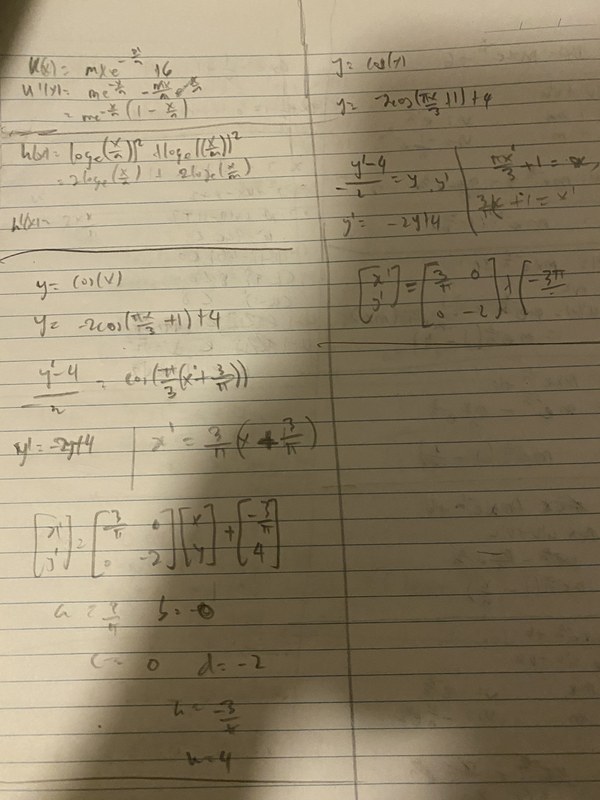 u(x) = mxe^{-x/n} + 6
u'(x) = me^{-x/n} - mx/n e^{-x/n}
= me^{-x/n}(1 - x/n)
h(x) = log_e(x/n)^2 + log_e((x/m))^2
= 2log_e(x/n) + 2log_e(x/m)
h'(x) =
y = cos(x)
y = -2cos(πx/3 + 1) + 4
y'-4/2 = cos(π/3(x' + 3/π))
y' = -2y+4 | x' = 3/π(x + 3/π)
[x' y'] = [3/π 0 0 -2][x y] + [-3/π 4]
a = 3/π b = 0
c = 0 d = -2
h = -3/π
k = 4
y = cos(x)
y = -2cos(πx/3 + 1) + 4
y'-4/-2 = y y' | πx'/3 + 1 = x,
y' = -2y+4 | + 1 = x'
[x' y'] = [3/π 0 0 -2] + [-3π